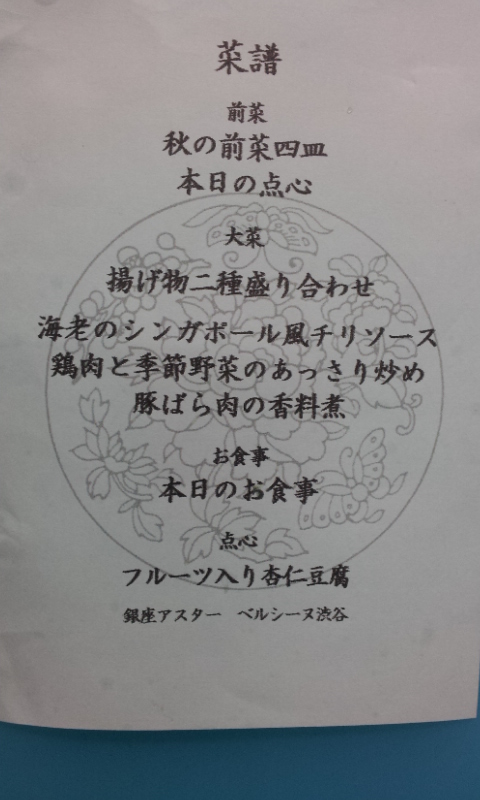 菜譜
前菜
秋の前菜四皿
本日の点心
大菜
揚げ物二種盛り合わせ
海老のシンガポール風チリソース
鶏肉と季節野菜のあっさり炒め
豚ばら肉の香料煮
お食事
本日のお食事
点心
フルーツ入り杏仁豆腐
銀座アスター　ベルシーヌ渋谷